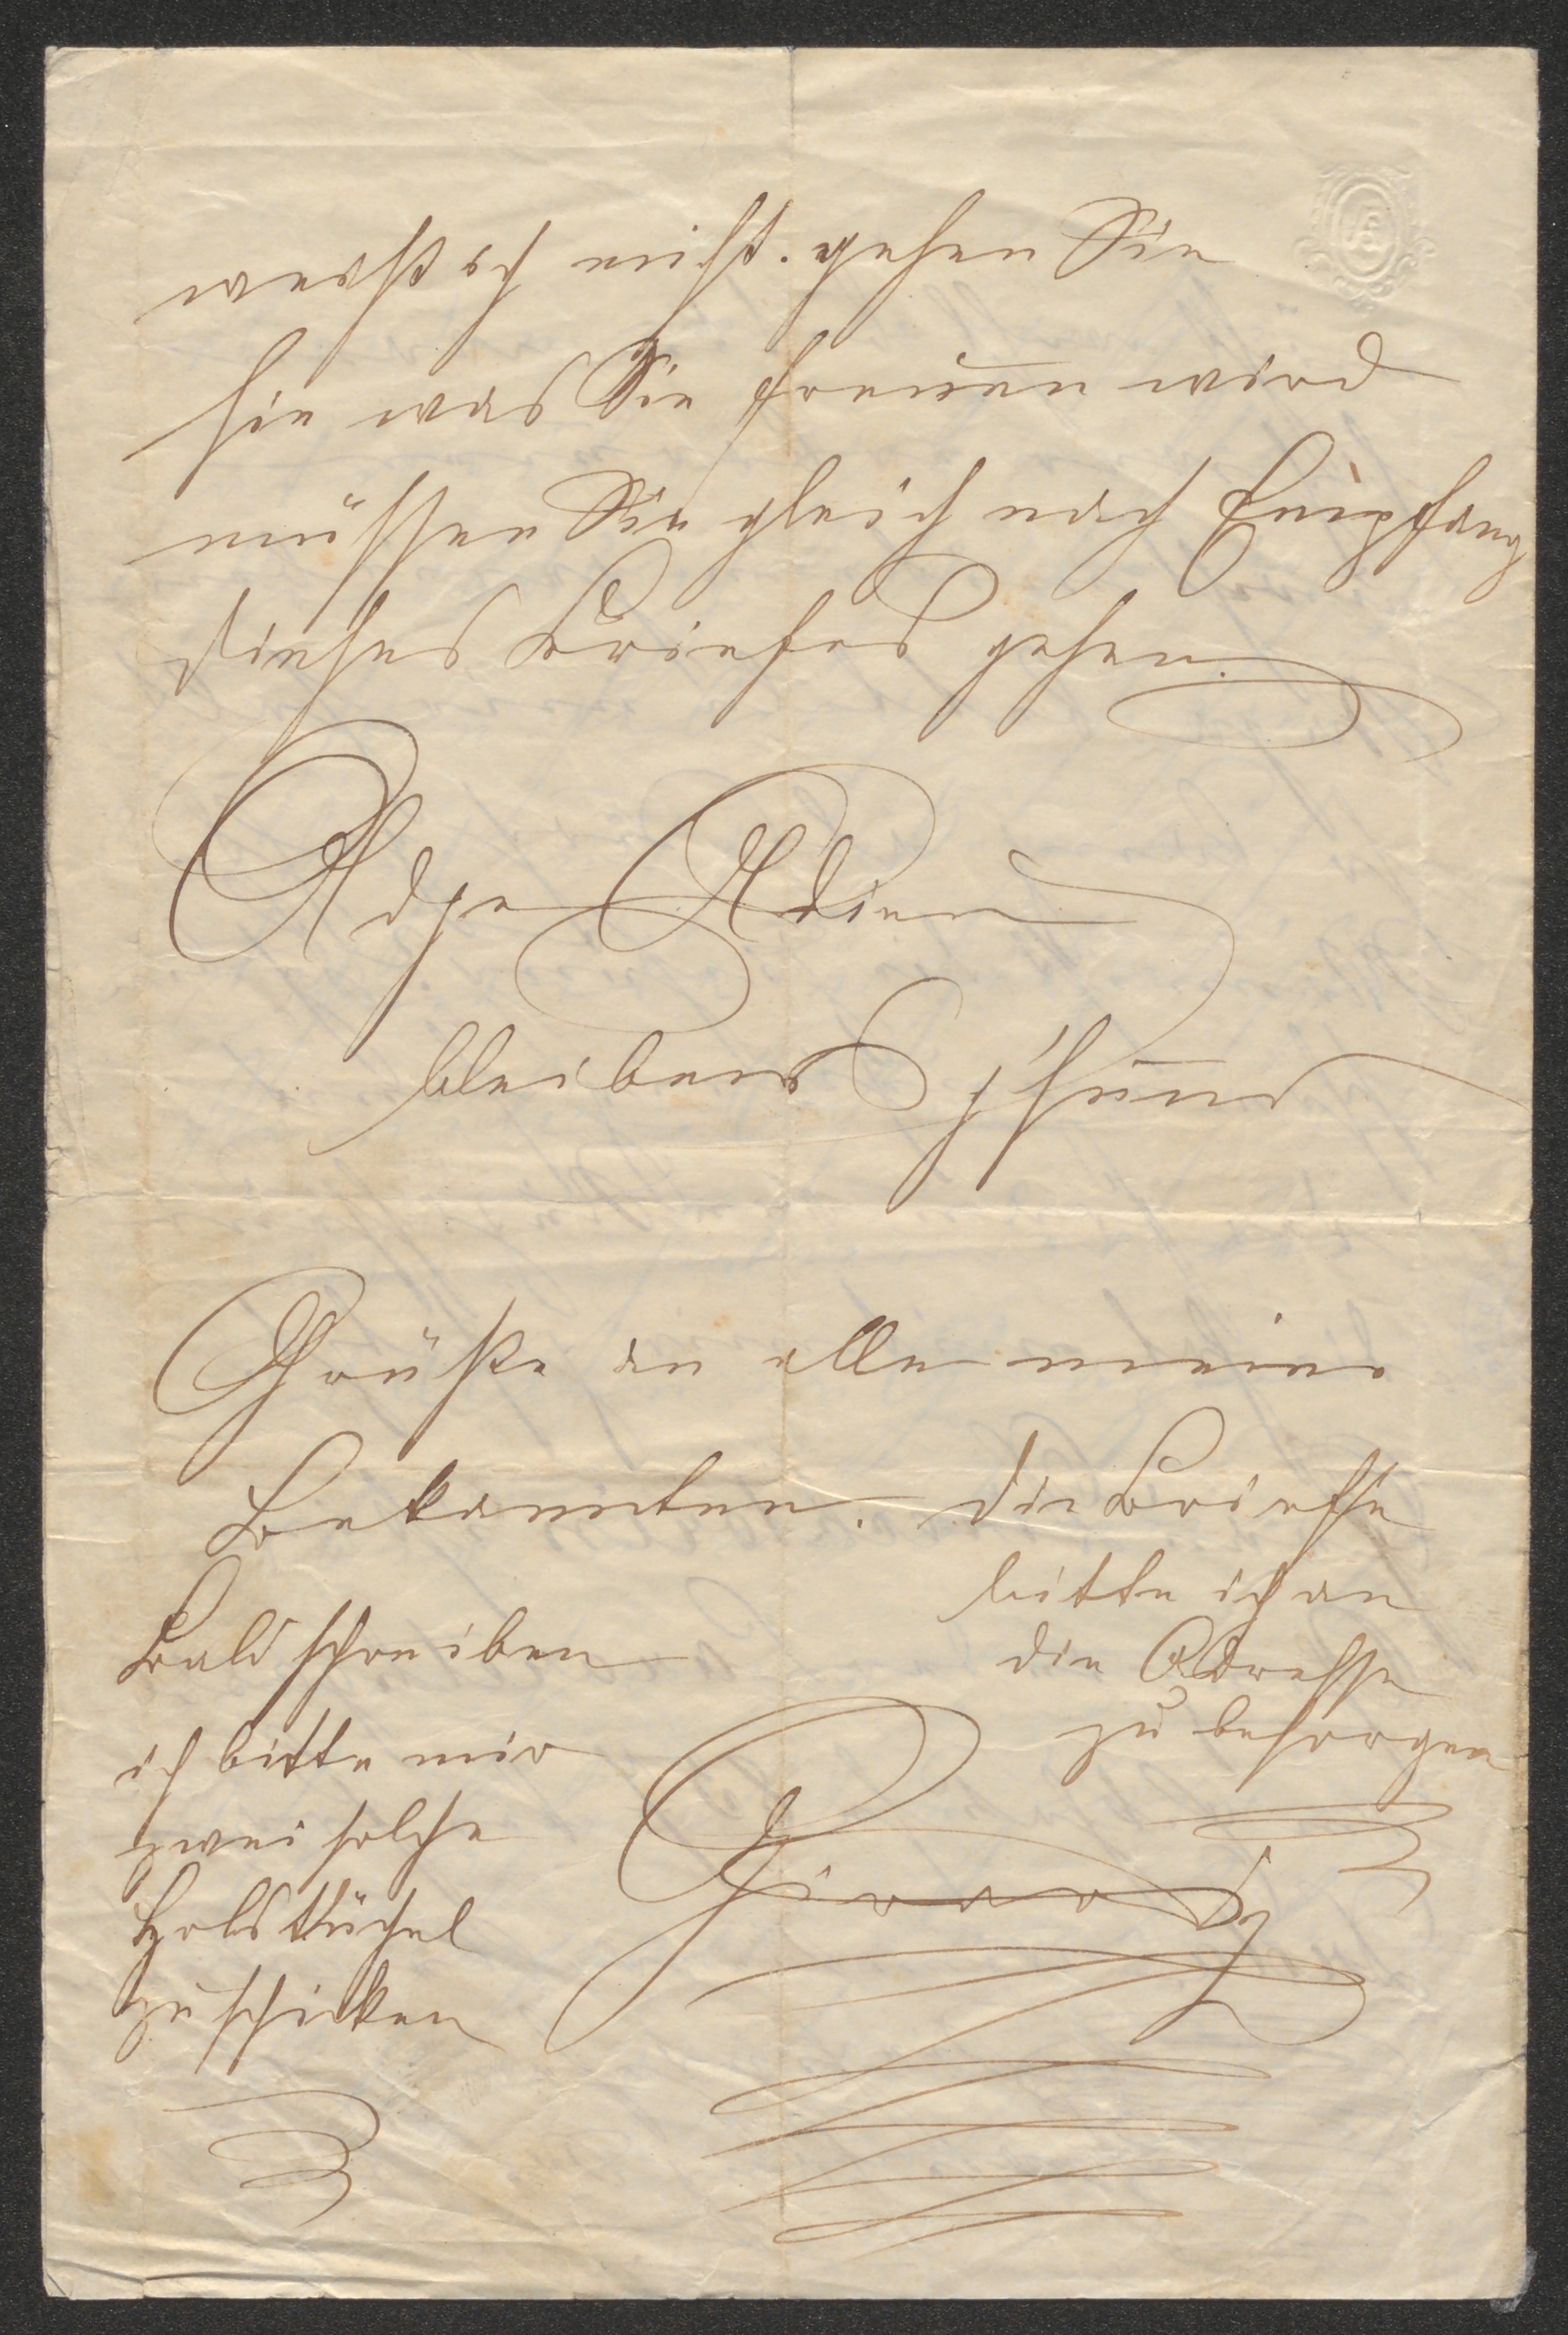 weiß ich nicht. gehen Sie
hin was Sie freuen wird
müssen Sie gleich nach Empfang
dieses Briefes gehen.
Adje Adieu
bleibens g'sund
Grüße an alle meine
Bekannten.
die Briefe
bitte ich an
die Adresse
zu besorgen
Bald schreiben
ich bitte mir
zwei solche
Halstüchel
zu schicken
Girardi